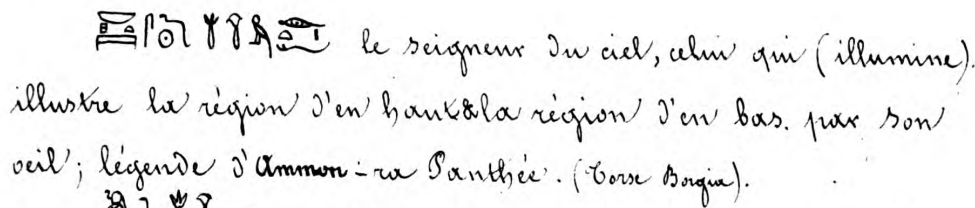 le seigneur du ciel, celui qui (illumine).
illustre la région d'en haut & la région d'en bas. par son
oeil; légende d'Ammon-ra Panthée. (Torse Borgia).